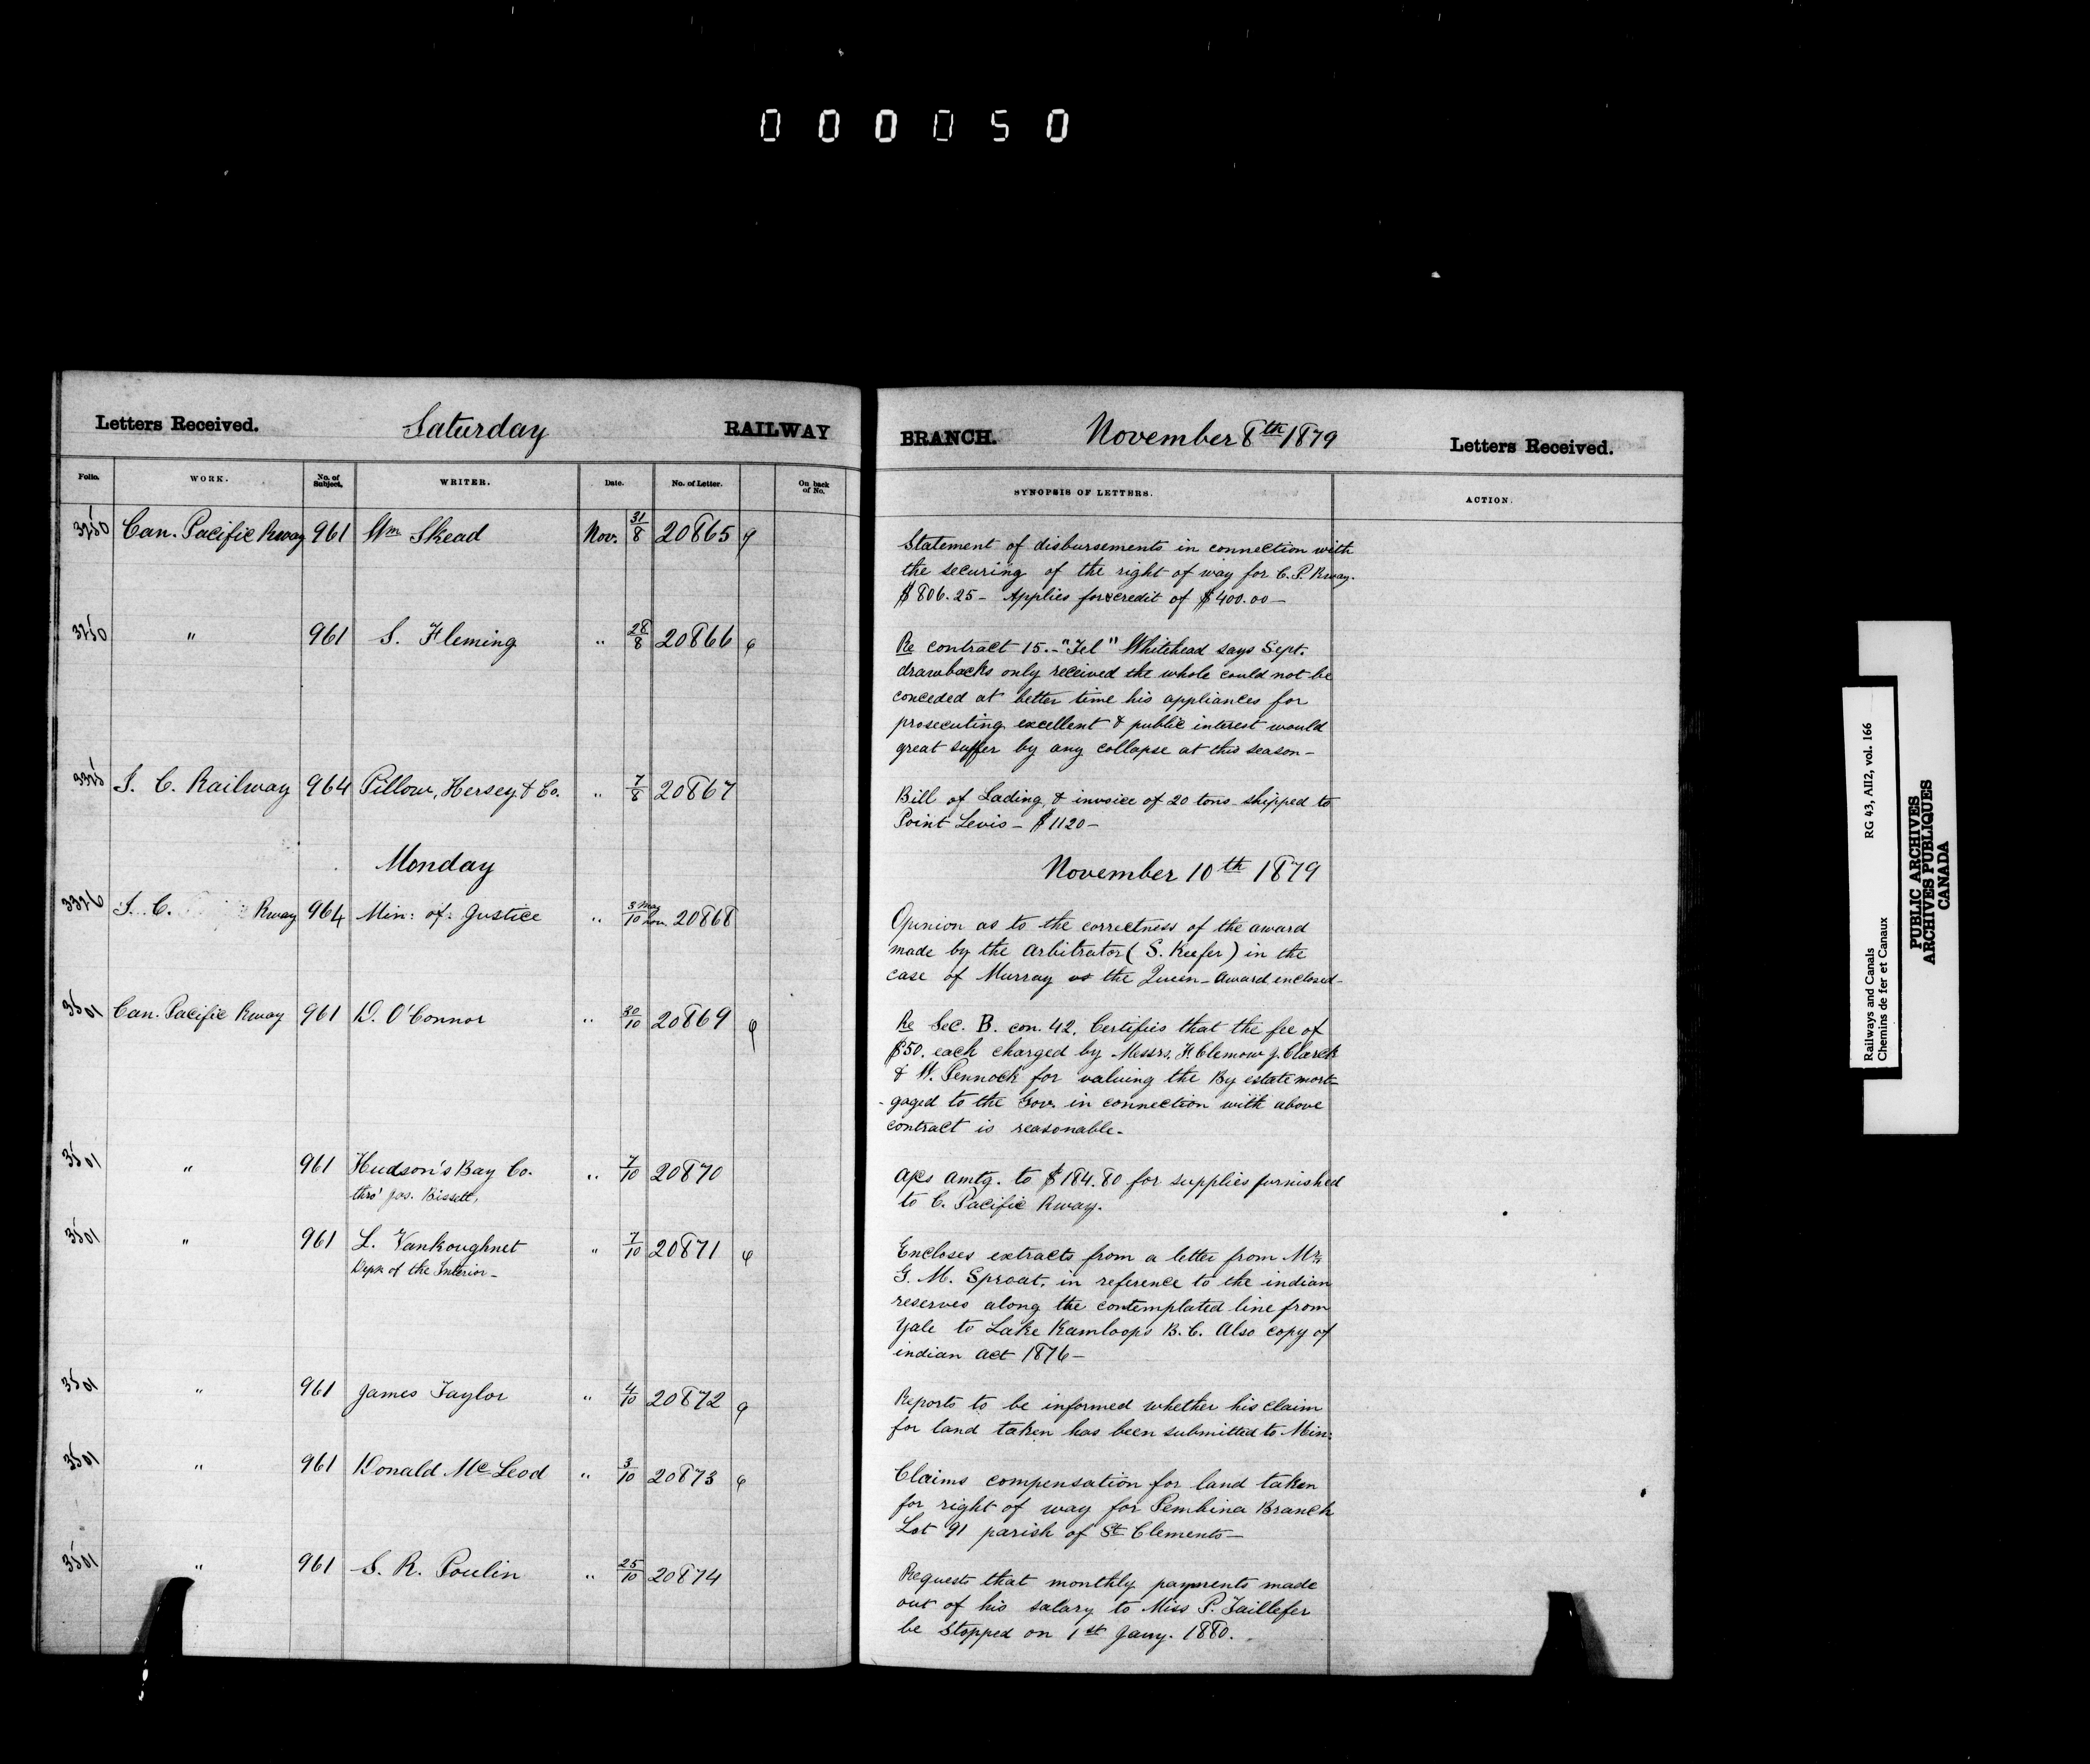 000050
Letters Received. Saturday RAILWAY
Folio. WORK. No. of Subject. WRITER. Date. No. of Letter. On back of No.
3250 Can. Pacific Rway 961 Wm Skead Nov. 31/8 20865
3250 " 961 S. Fleming " 28/8 20866
3325 I. C. Railway 964 Pillow, Hersey & Co. " 7/8 20867
Monday
3326 I. C. Rway 964 Min: of: Justice " 3 May/10 Nov. 20868
3501 Can. Pacific Rway 961 D. O'Connor " 30/10 20869
3501 " 961 Hudson's Bay Co. " 7/10 20870
thro' Jas. Bissett,
3501 " 961 L. Vankoughnet " 7/10 20871
Dept of the Interior -
3501 " 961 James Taylor " 4/10 20872
3501 " 961 Donald McLeod " 3/10 20873
3501 " 961 S. R. Poulin " 25/10 20874
BRANCH. November 8th 1879 Letters Received.
SYNOPSIS OF LETTERS. ACTION.
Statement of disbursements in connection with
the securing of the right of way for C. P. Rway.
$806.25 - Applies for credit of $400.00 -
Re contract 15. - "Tel" Whitehead says Sept.
drawbacks only received the whole could not be
conceded at better time his appliances for
prosecuting excellent & public interest would
great suffer by any collapse at this season -
Bill of Lading & invoice of 20 tons shipped to
Point Levis - $1120 -
November 10th 1879
Opinion as to the correctness of the award
made by the Arbitrator (S. Keefer) in the
case of Murray vs the Queen - Award enclosed -
Re Sec. B. con. 42. Certifies that the fee of
$50. each charged by Messrs. F Clemow J. Clarck
& W. Pennock for valuing the By estate mort-
-gaged to the Gov. in connection with above
contract is reasonable -
Acs amtg. to $184.80 for supplies furnished
to C. Pacific Rway.
Encloses extracts from a letter from Mr.
G. M. Sproat. in reference to the indian
reserves along the contemplated line from
Yale to Lake Kamloops B. C. Also copy of
indian Act 1876 -
Reports to be informed whether his claim
for land taken has been submitted to Min:
Claims compensation for land taken
for right of way for Pembina Branch
Lot 91 parish of St Clements -
Requests that monthly payments made
out of his salary to Miss P. Taillefer
be stopped on 1st Jany. 1880.
Railways and Canals RG 43, AII2, vol. 166
Chemins de fer et Canaux
PUBLIC ARCHIVES
ARCHIVES PUBLIQUES
CANADA